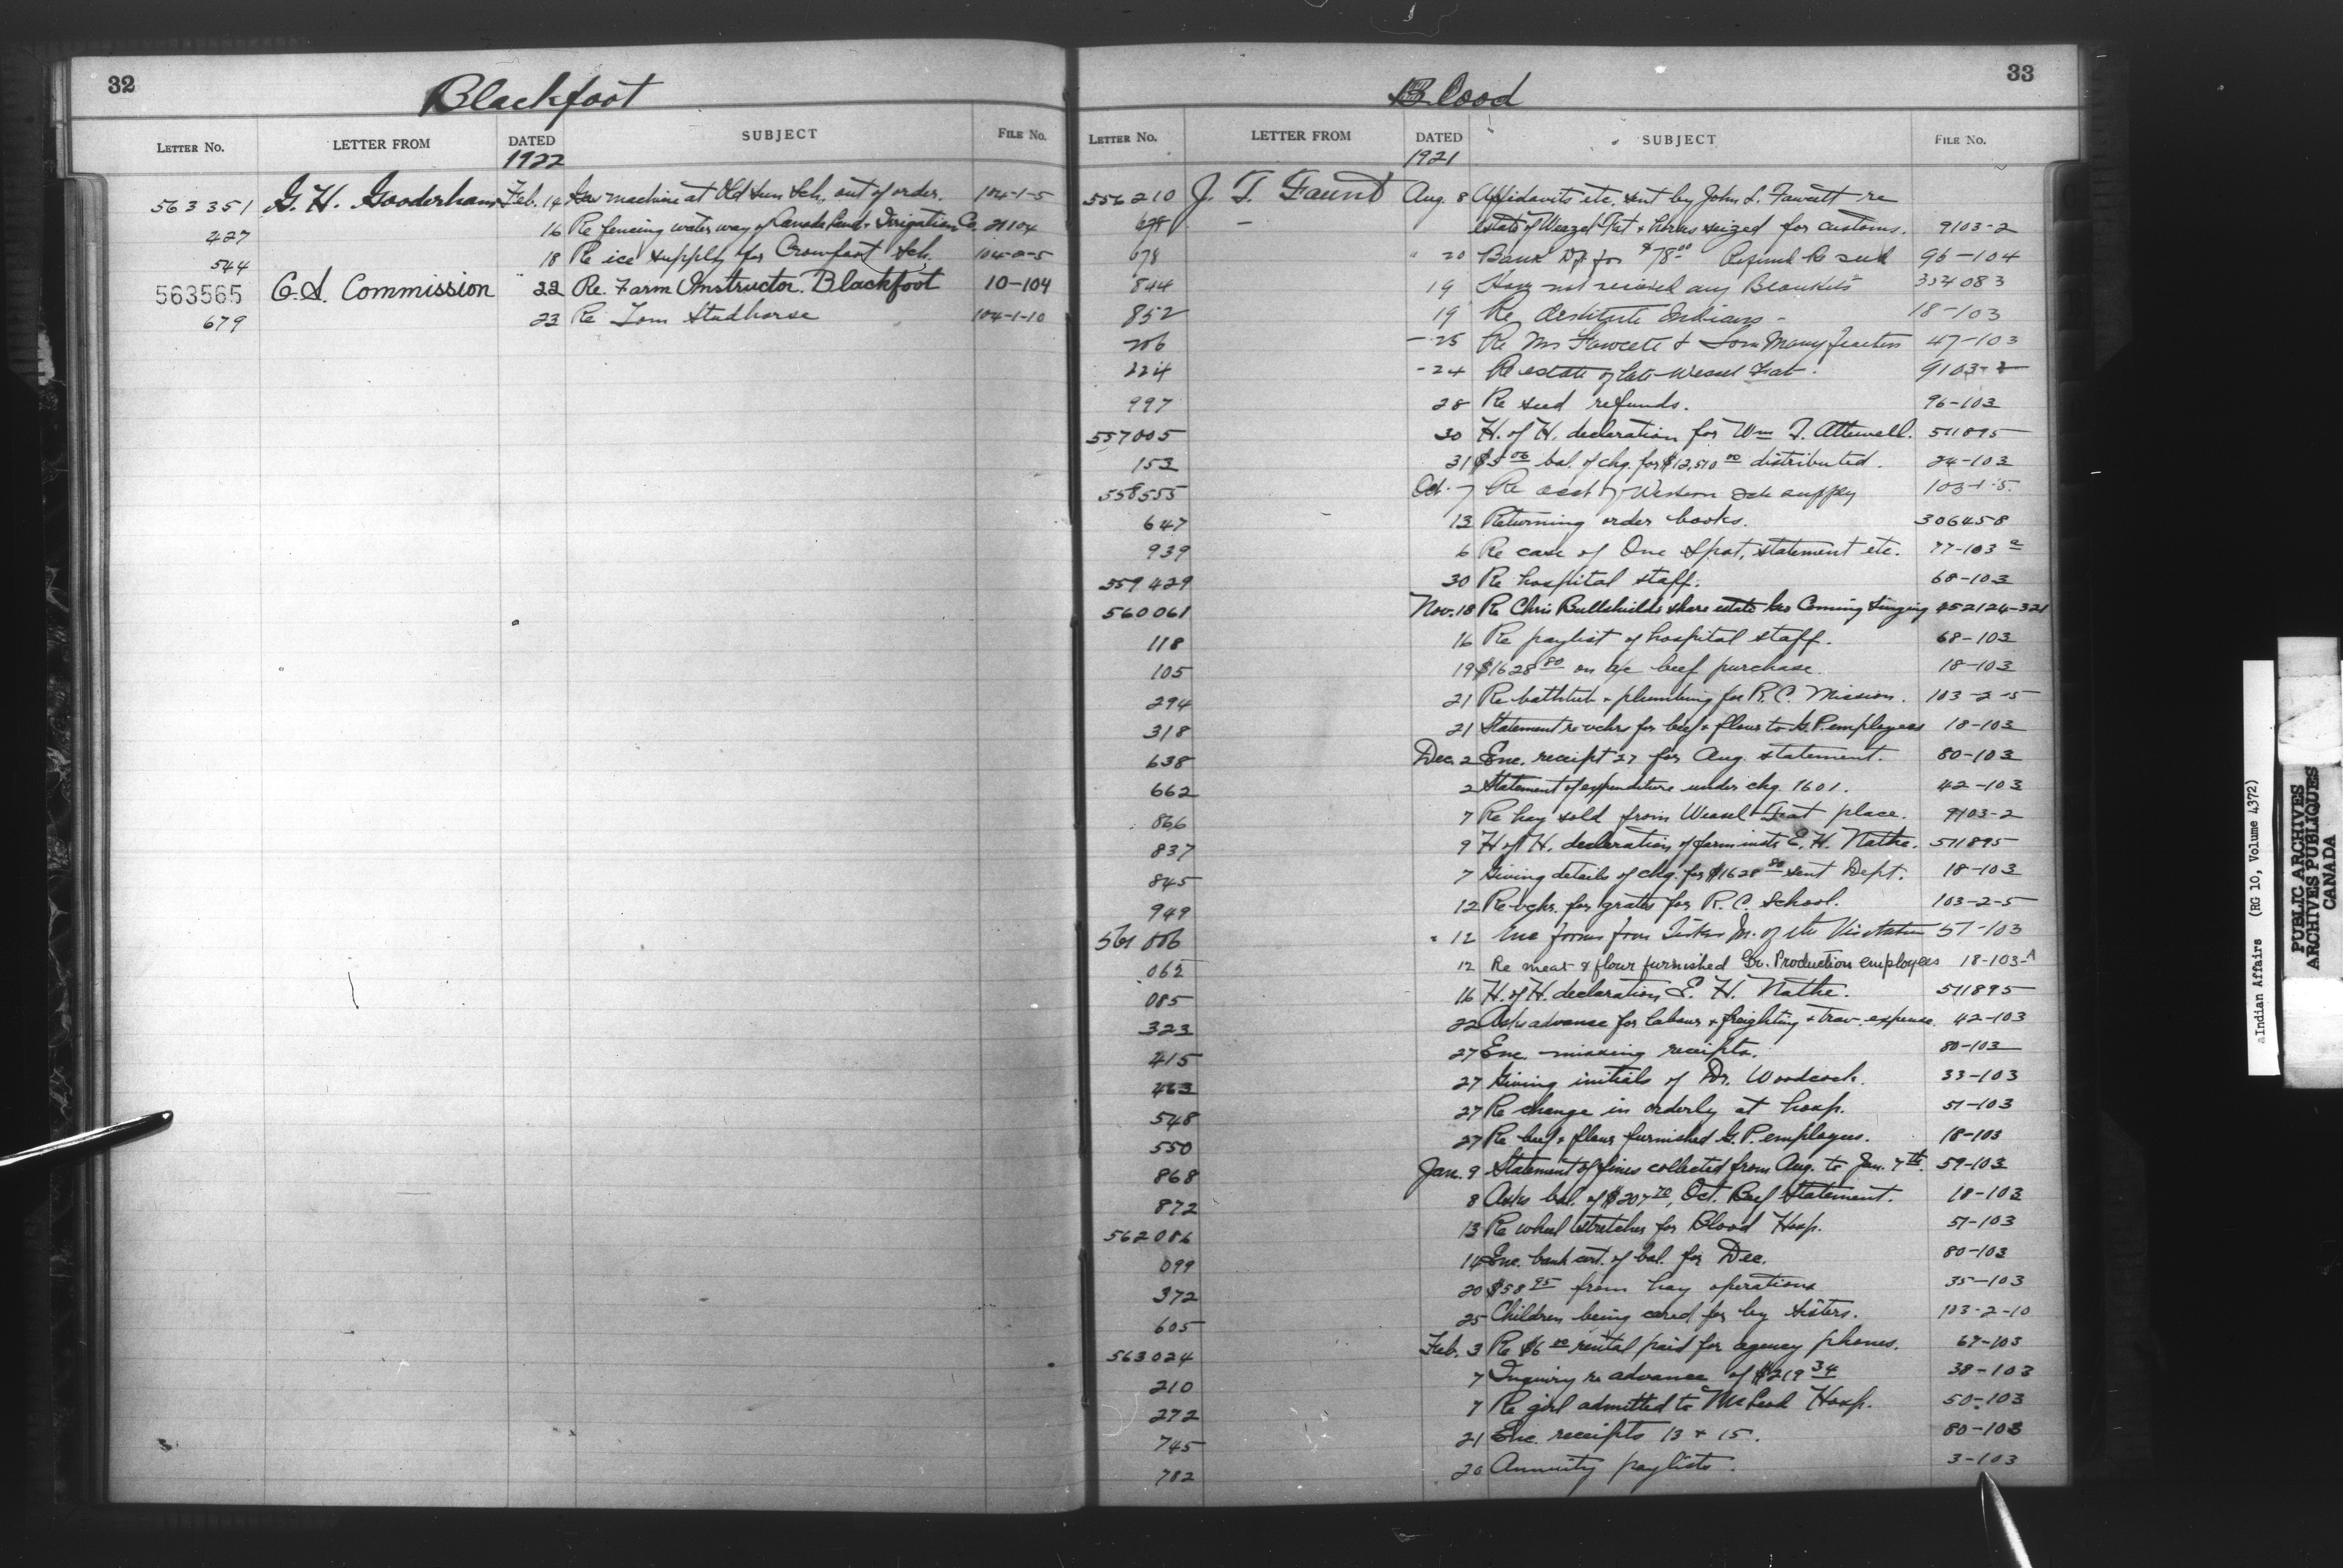 32
Blackfoot
LETTER NO. LETTER FROM DATED SUBJECT FILE No.
1922
563351 G. H. Gooderham Feb. 14 machine at Old Sun Sch. out of order. 104-1-5
427 16 Re fencing water way of Canada Land & Irrigation Co. 21104
544 18 Re ice supply for Crowfoot Sch. 104-2-5
563565 C.S. Commission 22 Re. Farm Instructor. Blackfoot 10-104
679 23 Re Tom Studhorse 104-1-10
33
Blood
LETTER No. LETTER FROM DATED SUBJECT FILE No.
1921
556210 J. T. Faunt Aug. 8 Affidavits etc. sent by John L. Fawcett re
estate of Weazel Fat & horses seized for customs. 9103-2
678 " 20 Bank Dft for $78.00 Refund Re seed 96-104
844 19 Have not received any Blankets 334083
852 19 Re destitute Indians - 18-103
206 - 25 Re Mr Fawcett & Tom Many Feathers 47-103
224 - 24 Re estate of late Weasel Fat. 9103-2
997 28 Re seed refunds. 96-103
557005 30 H. of H. declaration for Wm F. Attewell. 511895
153 31 $5.06 bal. of chq. for $12,510.00 distributed. 24-103
558555 Oct. 7 Re acct of Western Sch supply 103-1-5.
647 13 Returning order books. 306458
939 6 Re case of One Spot, statement etc. 77-103
559429 30 Re hospital staff. 68-103
560061 Nov. 18 Re Chris Bullchild's share estate Coming Singing 252124-321
118 16 Re paylist of hospital staff. 68-103
105 19 $1628.80 on a/c beef purchase. 18-103
294 21 Re bathtub & plumbing for R.C. Mission. 103-2-5
318 21 Statement re vchrs for beef & flour to G.P. employees 18-103
638 Dec. 2 Enc. receipt 27 for Aug. statement. 80-103
662 2 Statement of expenditure under chq. 1601. 42-103
866 7 Re hay sold from Weasel Fat place. 9103-2
837 9 H of H. declaration of farm instr E. H. Nathe. 511895
845 7 Giving details of chq. for $1628.80 sent Dept. 18-103
949 12 Re vchr. for grates for R.C. School. 103-2-5
561006 " 12 Enc forms from Sister M. of the Visitation 51-103
062 12 Re meat & flour furnished Gr. Production employees 18-103-A
085 16 H. of H. declaration E. H. Nathe. 511895
323 22 Asks advance for labour & freighting & trav. expense. 42-103
415 27 Enc. missing receipts. 80-103
463 27 Giving initials of Dr. Woodcock. 33-103
548 27 Re change in orderly at hosp. 51-103
550 27 Re beef & flour furnished G.P. employees. 18-103
868 Jan. 9 Statement of fines collected from Aug. to Jan. 7th. 59-103
872 8 Asks bal. of $207.70, Oct. Beef Statement. 18-103
562086 13 Re wheel stretcher for Blood Hosp. 51-103
099 14 Enc. bank cert. of bal. for Dec. 80-103
372 20 $58.95 from hay operations 35-103
605 25 Children being cared for by sisters. 103-2-10
563024 Feb. 3 Re $6.00 rental paid for agency phones. 67-103
210 7 Inquiry re advance of $219.34 38-103
272 7 Re girl admitted to McLeod Hosp. 50-103
745 21 Enc. receipts 13 & 15. 80-103
782 20 Annuity paylists. 3-103
aIndian Affairs (RG 10, Volume 4372)
PUBLIC ARCHIVES
ARCHIVES PUBLIQUES
CANADA